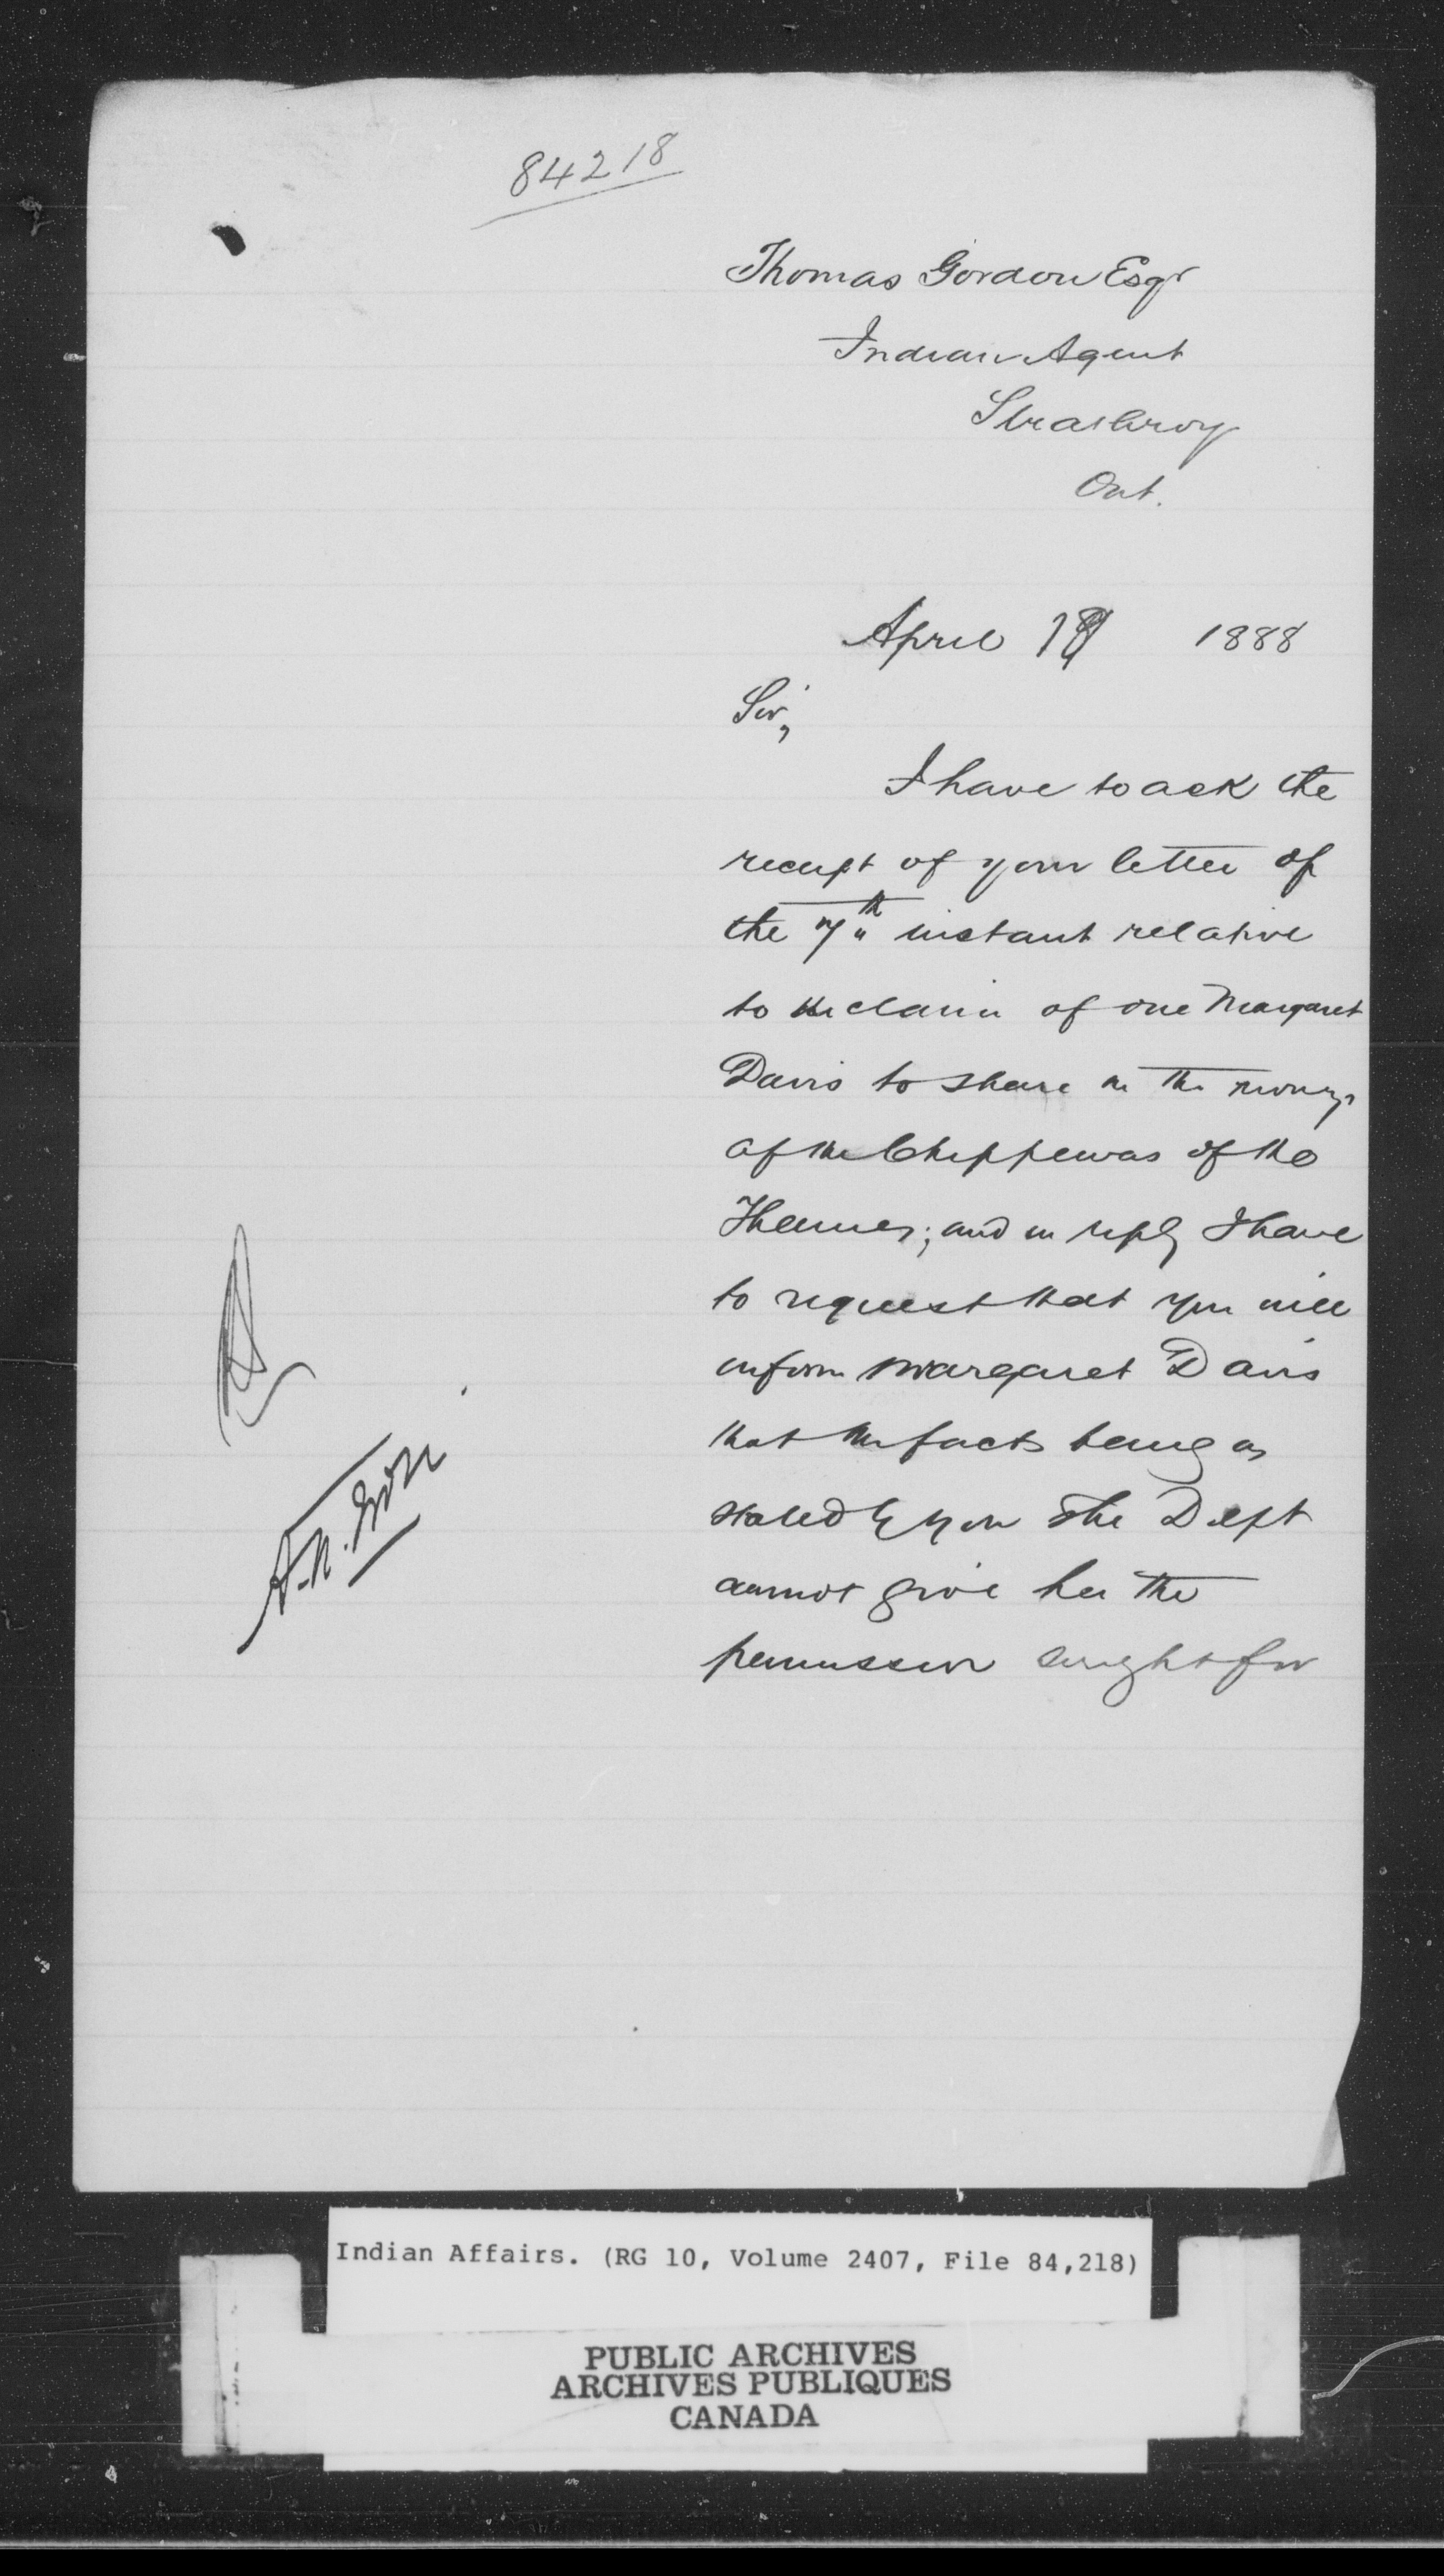 84218
Thomas Gordon Esqr
Indian Agent
Strathroy
Ont.
April 1888
Sir,
I have to ack the
receipt of your letter of
the 7th instant relative
to the claim of one Margaret
Davis to share in the moneys
of the Chippewas of the
Thames; and in reply I have
to request that you will
inform Margaret Davis
that the facts being as
stated by you the Dept
cannot give her the
permission sought for
Indian Affairs. (RG 10, Volume 2407, File 84,218)
PUBLIC ARCHIVES
ARCHIVES PUBLIQUES
CANADA